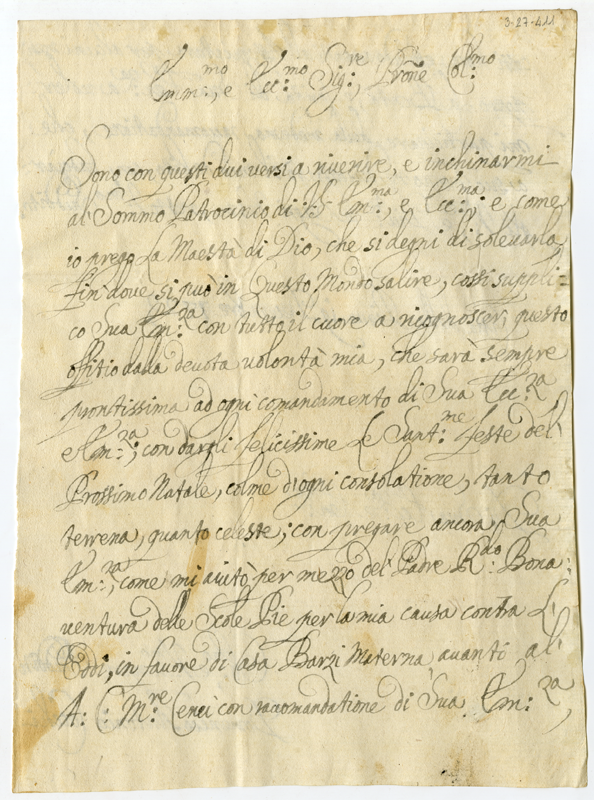 3-27-411
Emm:mo, e Ecc:mo Sig:re, Prõne Col:mo
Sono con questi dui versi a riverire, e inchinarmi
al Sommo Patrocinio di V.S. Em:ma, e Ecc:ma: e come
io prego La Maestà di Dio, che si degni di solevarla
fin dove si può in Questo Mondo salire, cossì suppli=
co Sua Em:za con tutto il cuore a ricognoscer questo
offitio dalla devota volontà mia, che sarà sempre
prontissima ad ogni comandamento di Sua Ecc:za
e Em:za; con dargli felicissime Le Sant:me feste del
Prossimo Natale, colme d'ogni consolatione, tanto
terrena, quanto celeste; con pregare ancora Sua
Em:za, come mi aiutò per mezzo del Padre R:do Bona=
ventura delle Scole Pie per la mia causa contra L'
Eddi, in favore di Casa Barzi Materna avanti al
A: C: M:re Cenci con raccomandatione di Sua Em:za,